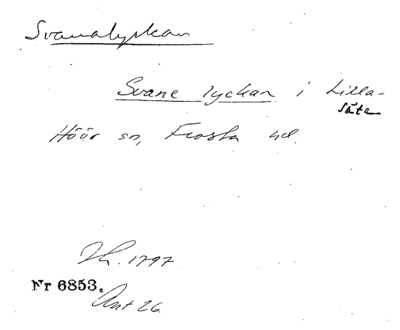 Svanalyckan
Svane lyckan i Lilla-
säte
Höör sn, Frosta hd.
Lh. 1797.
Nr 6853.
Ant 26.